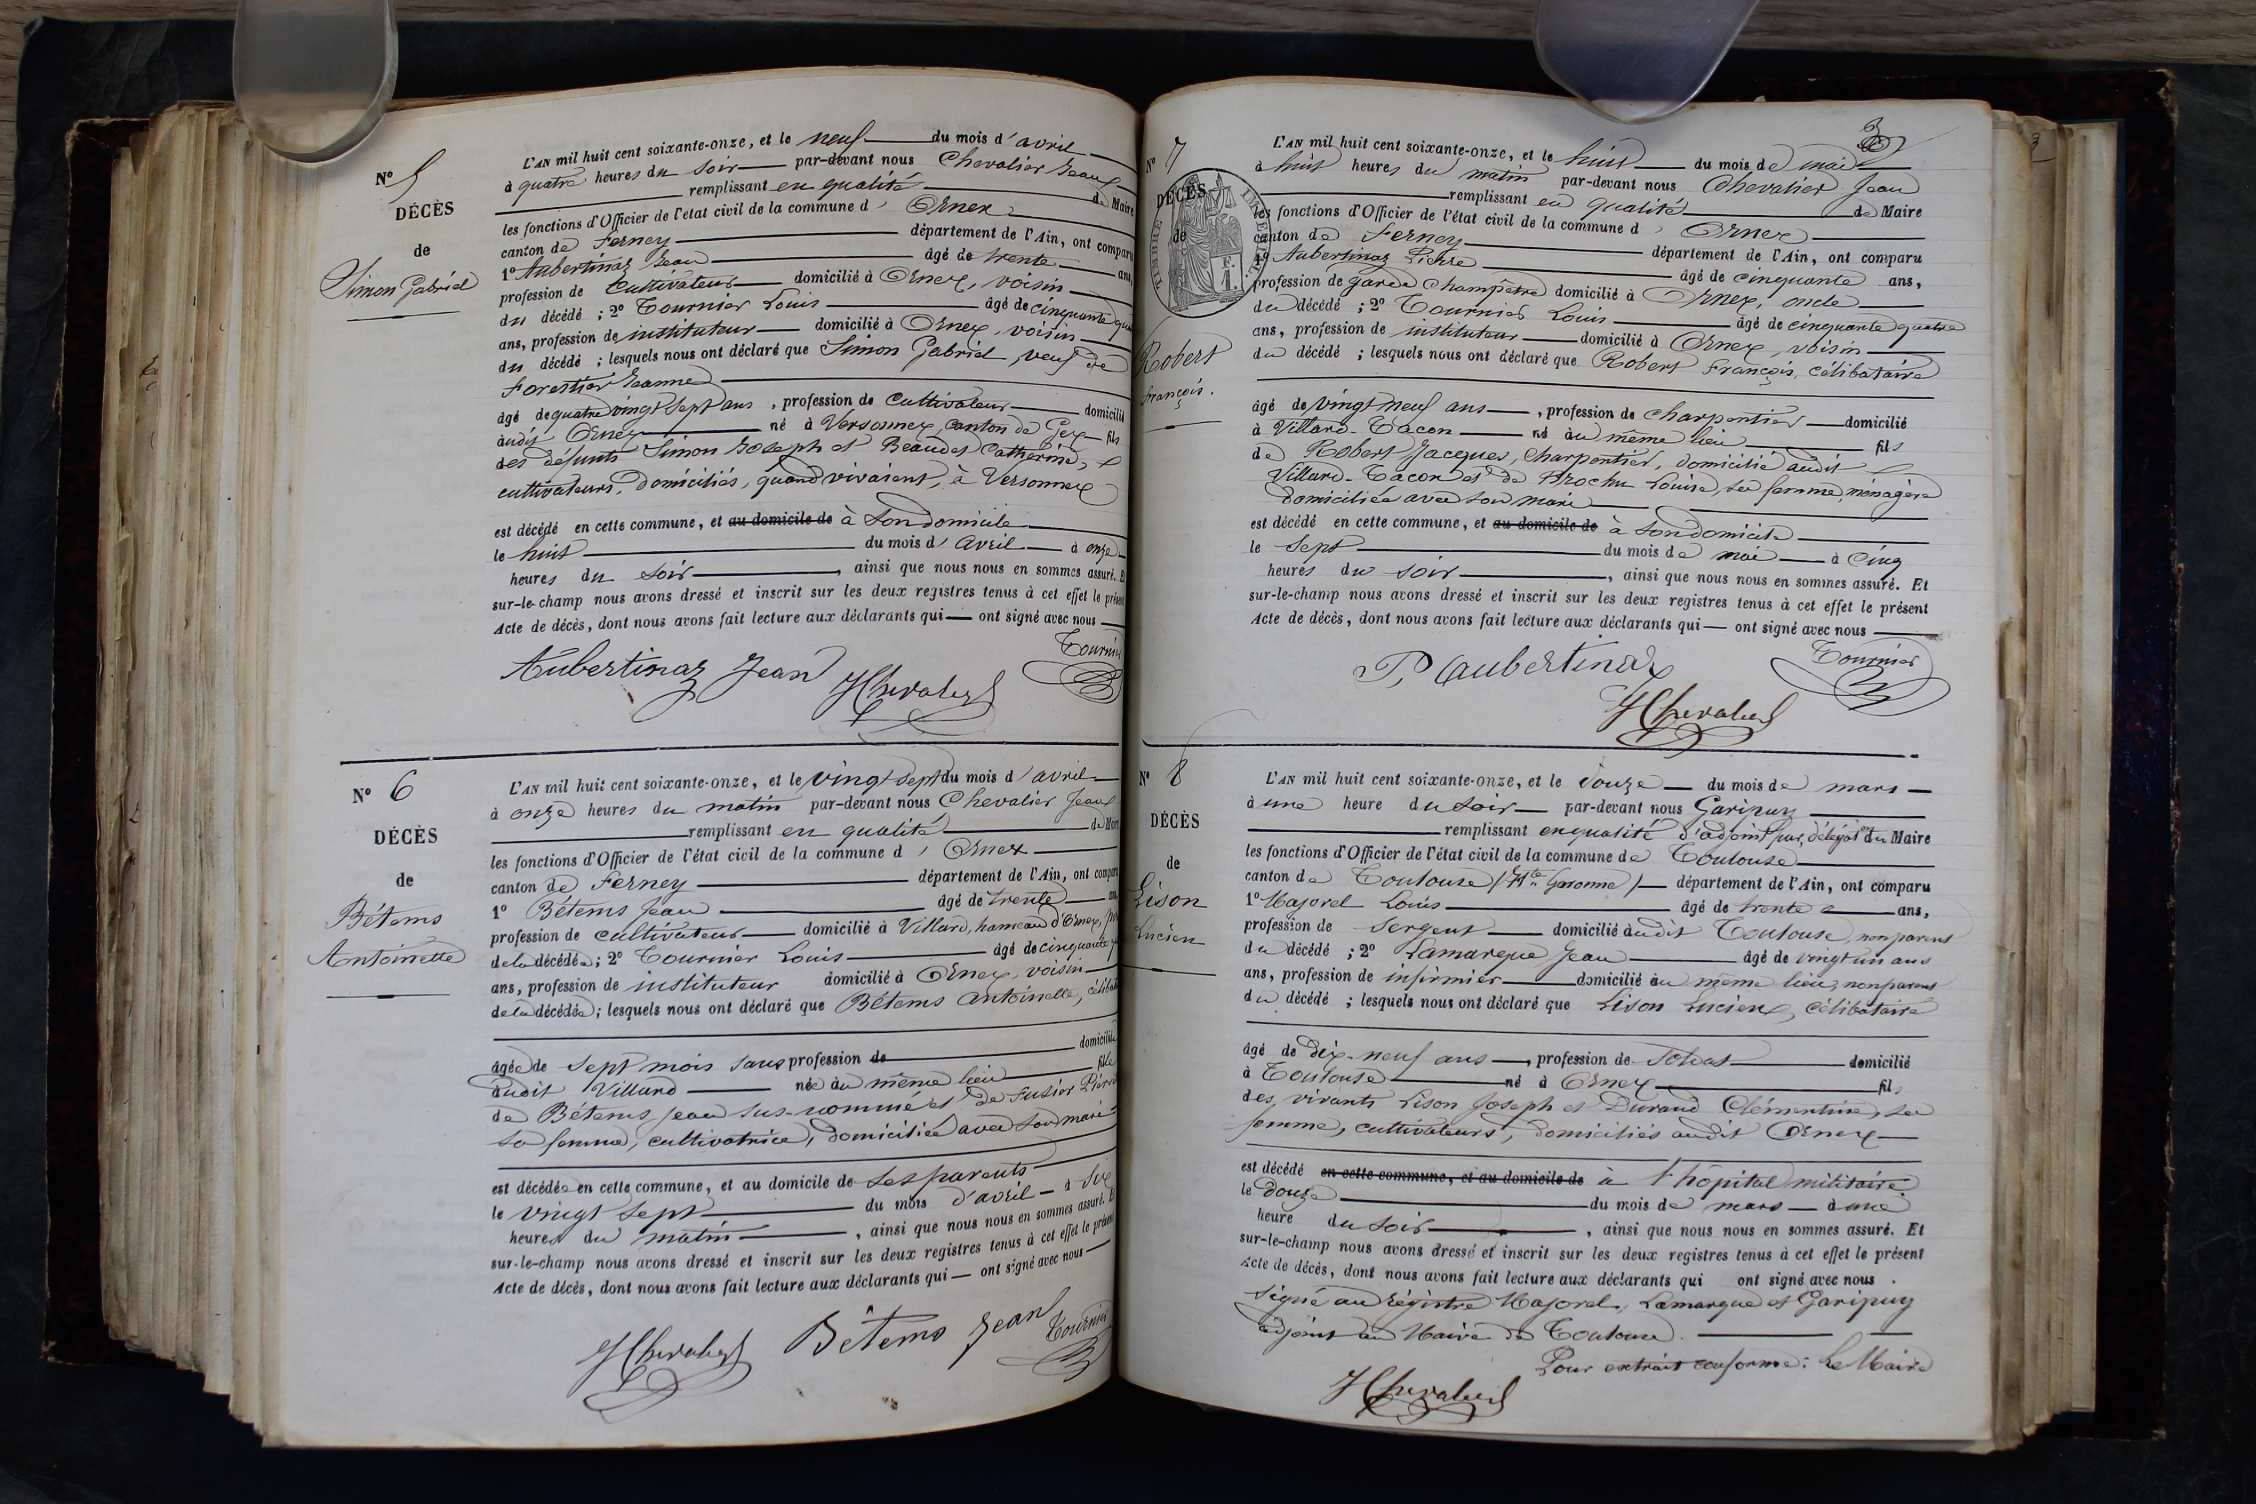 N° 5
DÉCÈS
de
Simon Gabriel
L'AN mil huit cent soixante-onze, et le neuf du mois d'avril
à quatre heures du soir par-devant nous Chevalier Jean
remplissant en qualité de Maire
les fonctions d'Officier de l'état civil de la commune d'Ornex
canton de Ferney département de l'Ain, ont comparu
1° Aubertinaz Jean âgé de trente ans,
profession de Cultivateur domicilié à Ornex, voisin
du décédé ; 2° Tournier Louis âgé de cinquante qua
ans, profession de instituteur domicilié à Ornex, voisin
du décédé ; lesquels nous ont déclaré que Simon Gabriel, veuf de
Forestier Jeanne
âgé de quatre vingt sept ans , profession de Cultivateur domicilié
audit Ornex né à Versonnex, canton de Gex fils
des défunts Simon Joseph et Beaudet Catherine,
cultivateurs, domiciliés, quand vivaient, à Versonnex
est décédé en cette commune, et au domicile de à son domicile
le huit du mois d'avril à onze
heures du soir , ainsi que nous nous en sommes assuré. Et
sur-le-champ nous avons dressé et inscrit sur les deux registres tenus à cet effet le présent
Acte de décès, dont nous avons fait lecture aux déclarants qui — ont signé avec nous
Tournier
Aubertinaz Jean JChevalier
N° 6
DÉCÈS
de
Bétems
Antoinette
L'AN mil huit cent soixante-onze, et le vingt sept du mois d'avril
à onze heures du matin par-devant nous Chevalier Jean
remplissant en qualité de Maire
les fonctions d'Officier de l'état civil de la commune d'Ornex
canton de Ferney département de l'Ain, ont comparu
1° Bétems Jean âgé de trente ans
profession de cultivateur domicilié à Villard, hameau d'Ornex,
de la décédée ; 2° Tournier Louis âgé de cinquante
ans, profession de instituteur domicilié à Ornex, voisin
de la décédée ; lesquels nous ont déclaré que Bétems Antoinette, céliba
âgée de sept mois sans profession de domiciliée
audit Villard née au même lieu fille
de Bétems Jean sus-nommé et de
sa femme, cultivatrice, domiciliée avec son mari
est décédée en cette commune, et au domicile de ses parents
le vingt sept du mois d'avril à six
heures du matin , ainsi que nous nous en sommes assuré. Et
sur-le-champ nous avons dressé et inscrit sur les deux registres tenus à cet effet le présent
Acte de décès, dont nous avons fait lecture aux déclarants qui — ont signé avec nous
JChevalier Bétems Jean Tournier
3
N° 7
DÉCÈS
de
TIMBRE IMPÉRIAL
Robert
François.
L'AN mil huit cent soixante-onze, et le huit du mois de mai
à huit heures du matin par-devant nous Chevalier Jean
remplissant en qualité de Maire
les fonctions d'Officier de l'état civil de la commune d'Ornex
canton de Ferney département de l'Ain, ont comparu
1° Aubertinaz Pierre âgé de cinquante ans,
profession de garde champêtre domicilié à Ornex, oncle
du décédé ; 2° Tournier Louis âgé de cinquante quatre
ans, profession de instituteur domicilié à Ornex, voisin
du décédé ; lesquels nous ont déclaré que Robert François, célibataire
âgé de vingt neuf ans , profession de charpentier domicilié
à Villard-Tacon né au même lieu fils
de Robert Jacques, charpentier, domicilié audit
Villard-Tacon et de Brochu Louise, sa femme, ménagère
domiciliée avec son mari
est décédé en cette commune, et au domicile de à son domicile
le sept du mois de mai à cinq
heures du soir , ainsi que nous nous en sommes assuré. Et
sur-le-champ nous avons dressé et inscrit sur les deux registres tenus à cet effet le présent
Acte de décès, dont nous avons fait lecture aux déclarants qui — ont signé avec nous
P. Aubertinaz Tournier
JChevalier
N° 8
DÉCÈS
de
Lison
Lucien
L'AN mil huit cent soixante-onze, et le douze du mois de mars
à une heure du soir par-devant nous Garipuy
remplissant en qualité d'adjoint par délégat.on du Maire
les fonctions d'Officier de l'état civil de la commune de Toulouse
canton de Toulouse (Hte Garonne) département de l'Ain, ont comparu
1° Majorel Louis âgé de trente ans,
profession de Sergent domicilié audit Toulouse, non parent
du décédé ; 2° Lamarque Jean âgé de vingt un ans
ans, profession de infirmier domicilié au même lieu, non parent
du décédé ; lesquels nous ont déclaré que Lison Lucien, célibataire
âgé de dix-neuf ans , profession de Soldat domicilié
à Toulouse né à Ornex fils
des vivants Lison Joseph et Durand Clémentine, sa
femme, cultivateurs, domiciliés audit Ornex
est décédé en cette commune, et au domicile de à l'hôpital militaire
le douze du mois de mars à une
heure du soir , ainsi que nous nous en sommes assuré. Et
sur-le-champ nous avons dressé et inscrit sur les deux registres tenus à cet effet le présent
Acte de décès, dont nous avons fait lecture aux déclarants qui ont signé avec nous .
Signé au régistre Majorel, Lamarque et Garipuy
adjoint au Maire de Toulouse.
Pour extrait conforme : Le Maire
JChevalier